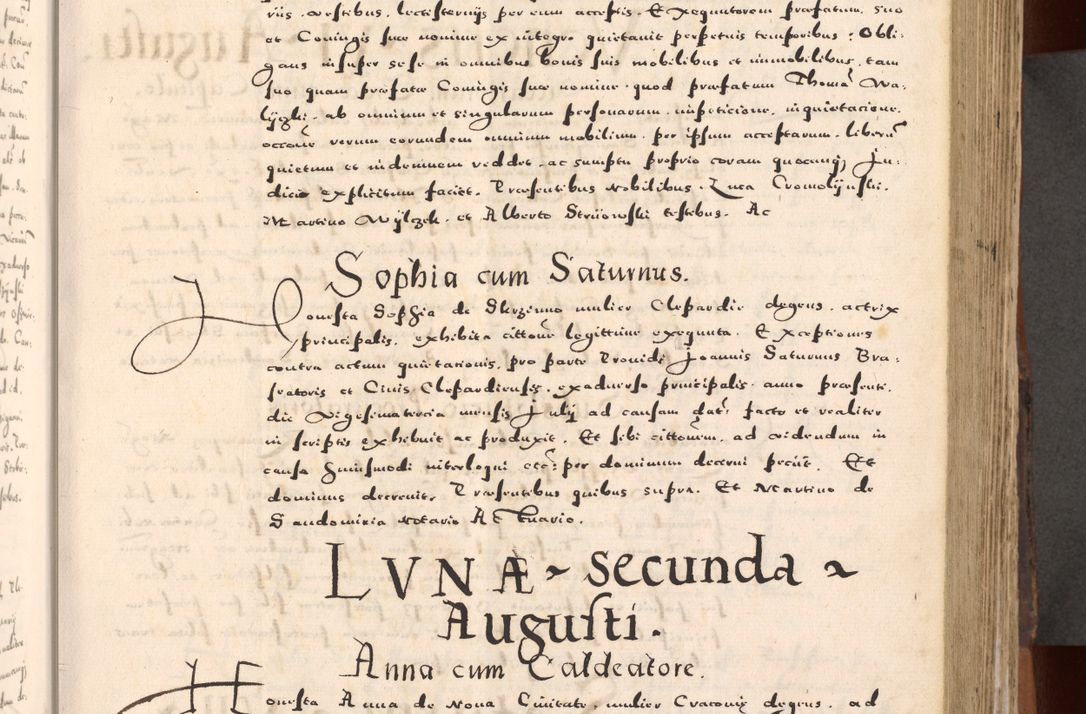 riis, vestibus, lectisternijs per eum acceptis. Exequutorem præfatum, suo
et Coniugis suæ nomine ex integro quietauit perpetuis temporibus. Obli-
gans insuper sese in omnibus bonis suis mobilibus et immobilibus, tam
suo quam præfatæ Coniugis suæ nomine, quod præfatum Thomā Wa-
lijski, ab omnium et singularum personarum, impeticione, inquietacione,
occōne rerum eorundem omnium mobilium, per ipsum acceptarum, liberū
quietum et indemnem reddet, ac sumptu proprio coram quocunq3 Ju-
dicio explicitum faciet. Præsentibus Nobilibus. Luca Cromolijnski.
Martino Wijlczek, et Alberto Striiowski testibus. Ac
Sophia cum Saturnus.
Honesta Sophia de Skrzinno mulier Clepardie degens, actrix
principalis, exhibita cittōne legittime exequuta. Exceptiones
contra actum quietacionis, pro parte Prouidi Joannis Saturnus Bra-
xeatoris et Ciuis Clepardiensis, exaduerso principalis, anno præsenti,
die Vigesimatercia mensis Julij ad causam dat' facto et realiter
in scriptis exhibuit ac produxit. Et sibi cittōnem, ad videndum in
causa huiusmodi interloqui etc: per dominum decerni peciit. Et
dominus decreuit. Præsentibus quibus supra. Et Martino de
Sandomiria Notario Actuario.
LVNÆ ~ secunda ~
Augusti.
Anna cum Caldeatore.
Honesta Anna de Noua Ciuitate, mulier Cracouie degens, ad